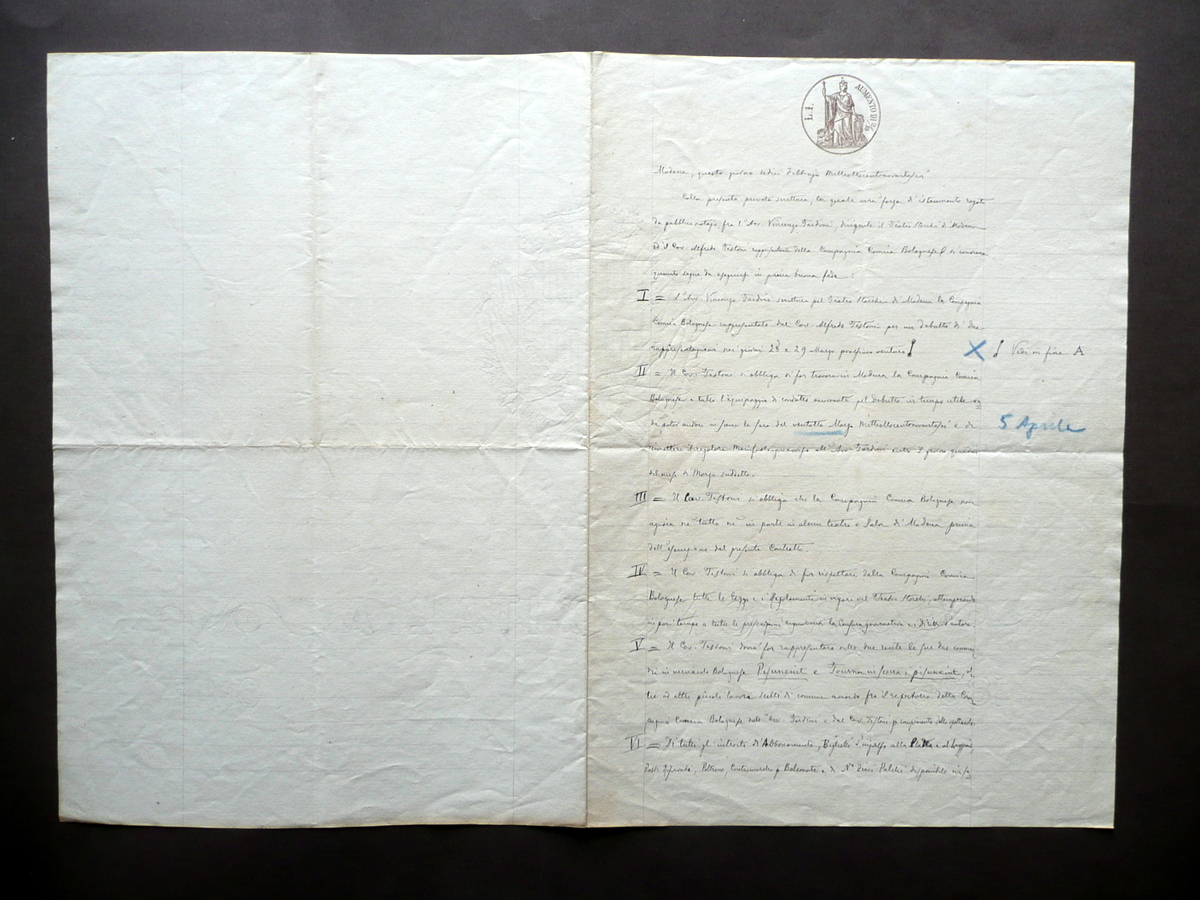 L. 1.
AUMENTO DI 2/10
Modena, questo giorno sedici Febbrajo Milleottocentonovantasei
Colla presente privata scrittura, la quale avrà forza d'istrumento rogato
da pubblico notajo fra l'Avv. Vincenzo Tardini, dirigente il Teatro Storchi di Modena
ed il Cav. Alfredo Testoni rappresentante della Compagnia Comica Bolognese si conviene
quanto segue da eseguirsi in piena buona fede:
I = L'Avv. Vincenzo Tardini scrittura pel Teatro Storchi di Modena la Compagnia
Comica Bolognese rappresentata dal Cav. Alfredo Testoni per un debutto di due
rappresentazioni nei giorni 28 e 29 Marzo prossimo venturo
X Vedi in fine A
II = Il Cav. Testoni si obbliga di far trovare in Modena la Compagnia Comica
Bolognese e tutto l'equipaggio di condotta necessario pel debutto in tempo utile
da poter andare in scena la sera del ventotto Marzo Milleottocentonovantasei e di
5 Aprile
trasmettere il regolare Manifesto all'Avv. Tardini entro il giorno quindici
del mese di Marzo suddetto.
III = Il Cav. Testoni si obbliga che la Compagnia Comica Bolognese non
agirà nè tutta nè in parte in alcun teatro o Salon di Modena prima
dell'esecuzione del presente Contratto.
IV = Il Cav. Testoni si obbliga di far rispettare dalla Compagnia Comica
Bolognese tutte le Leggi e i Regolamenti in vigore nel Teatro Storchi, attenendosi
in pari tempo a tutte le prescrizioni riguardanti la Censura governativa e i Diritti d'autore.
V = Il Cav. Testoni dovrà far rappresentare nelle due recite le sue due comme-
die in vernacolo Bolognese Pisuneint e Tournon in scena i pisuneint, ol-
tre ad altri piccoli lavori scelti di comune accordo fra il repertorio della Com-
pagnia Comica Bolognese dall'Avv. Tardini e dal Cav. Testoni a compimento dello spettacolo.
VI = Di tutti gl'introiti d'Abbonamento, Biglietti d'ingresso alla Platea e al Loggione,
Posti Riservati, Poltrone, Balconate e N° Dieci Palchi disponibili